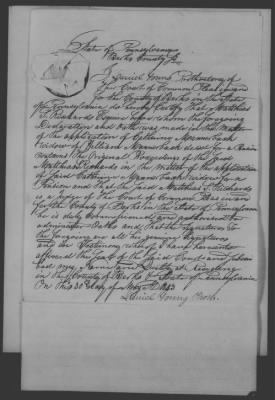 State of Pennsylvania
Berks County Ss
I Daniel Young Prothonotary of
the Court of Common Pleas in and
for the County of Berks in the State
of Pennsylvania do hereby Certify that Matthias
S. Richards Esquire before whom the foregoing
Declaration and Oath was made in the Matter
of the application of Catharine
Widow of William deceased for a Pension
the Original Proceedings of the said
Matthias S Richards in the Matter of the application
of said Catharine Widow for a
Pension and that the said Matthias S. Richards
is a Judge of the Court of Common Pleas in and
for the County of Berks in the State of Pennsylvania
he is duly Commissioned and authorized to
administer Oaths and that the signatures to
the foregoing are all his genuine signatures
and in Testimony whereof I have hereunto
affixed the Seal of the said Court and subscribed
my Name and at Reading
in the County of Berks & State of Pennsylvania
On this 30 day of May AD 1843
Daniel Young Proth.